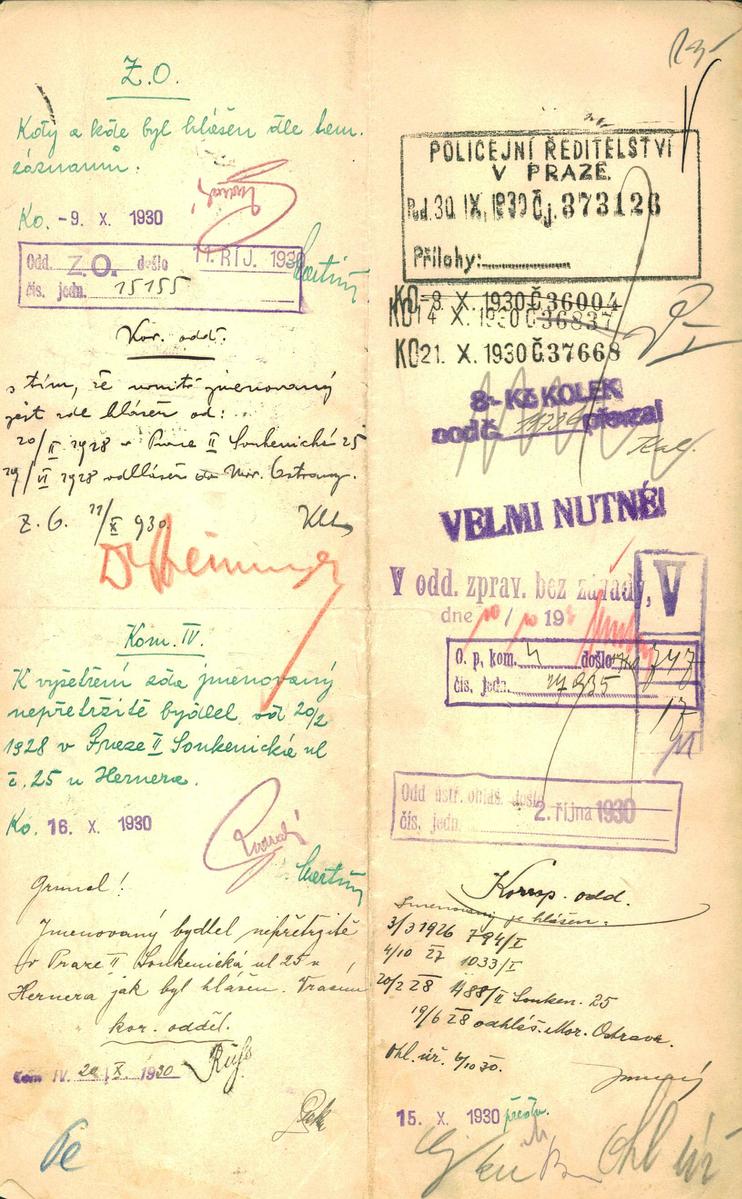 Z.O.
Kdy a kde byl hlášen dle tam.
záznamů.
Ko. -9. X. 1930
Odd. Z.O. došlo 11. ŘÍJ. 1930
čís. jedn. 15155
Kor. odd.
s tím, že jmenovaný
jest zde hlášen od:
20/II 1928 v Praze II Soukenická 25
19/VI 1928 odhlášen do Mor. Ostravy.
Z. O. 11/X 930
Kom. IV.
K vyšetření zda jmenovaný
nepřetržitě bydlel od 20/2
1928 v Praze II Soukenická ul
č. 25 u Hernera.
Ko. 16. X. 1930
Jmenovaný bydlel nepřetržitě
v Praze II Soukenická ul 25 u
Hernera jak byl hlášen.
kor. odděl.
Kom IV. 20/X. 1930
POLICEJNÍ ŘEDITELSTVÍ
V PRAZE.
Pod. 30. IX. 1930 Č.j. 373126
Přílohy:
KO -8. X. 1930 Č 36004
KO 14 X. 1930 Č 36837
KO 21. X. 1930 Č. 37668
8- Kč KOLEK
pod č. převzal
VELMI NUTNÉ!
V odd. zprav. bez závady, V
dne 10/10 193
O. p. kom. 4 došlo: 747
čís. jedn. 17935
17
Odd ústř. ohláš. došlo 2. října 1930
čís. jedn.
Korresp. odd.
Jmenovaný je hlášen:
3/3 1926 794/I
4/10 27 1033/I
20/2 28 488/II Souken. 25
19/6 28 odhláš. Mor. Ostrava.
Ohl. úř. 6/10 30.
15. X. 1930
ohl úř